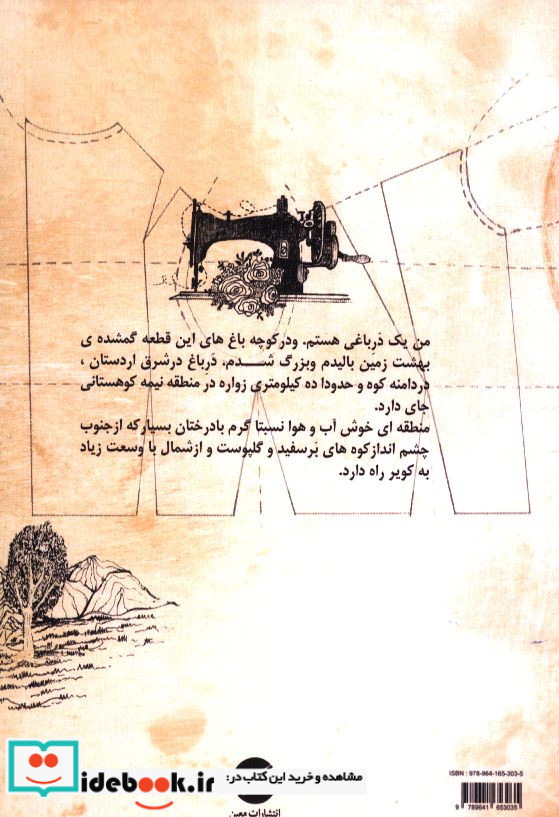 من یک دَرباغی هستم. ودرکوچه باغ های این قطعه گمشده ی
بهشت زمین بالیدم وبزرگ شدم. دَرباغ درشرق اردستان ،
دردامنه کوه و حدودا ده کیلومتری زواره در منطقه نیمه کوهستانی
جای دارد.
منطقه ای خوش آب و هوا نسبتا گرم بادرختان بسیارکه ازجنوب
چشم اندازکوه های بَرسفید و گلپوست و ازشمال با وسعت زیاد
به کویر راه دارد.
ISBN : 978-964-165-303-5
9 789641 653035
idebook.ir
مشاهده و خرید این کتاب در:
انتشارات معین